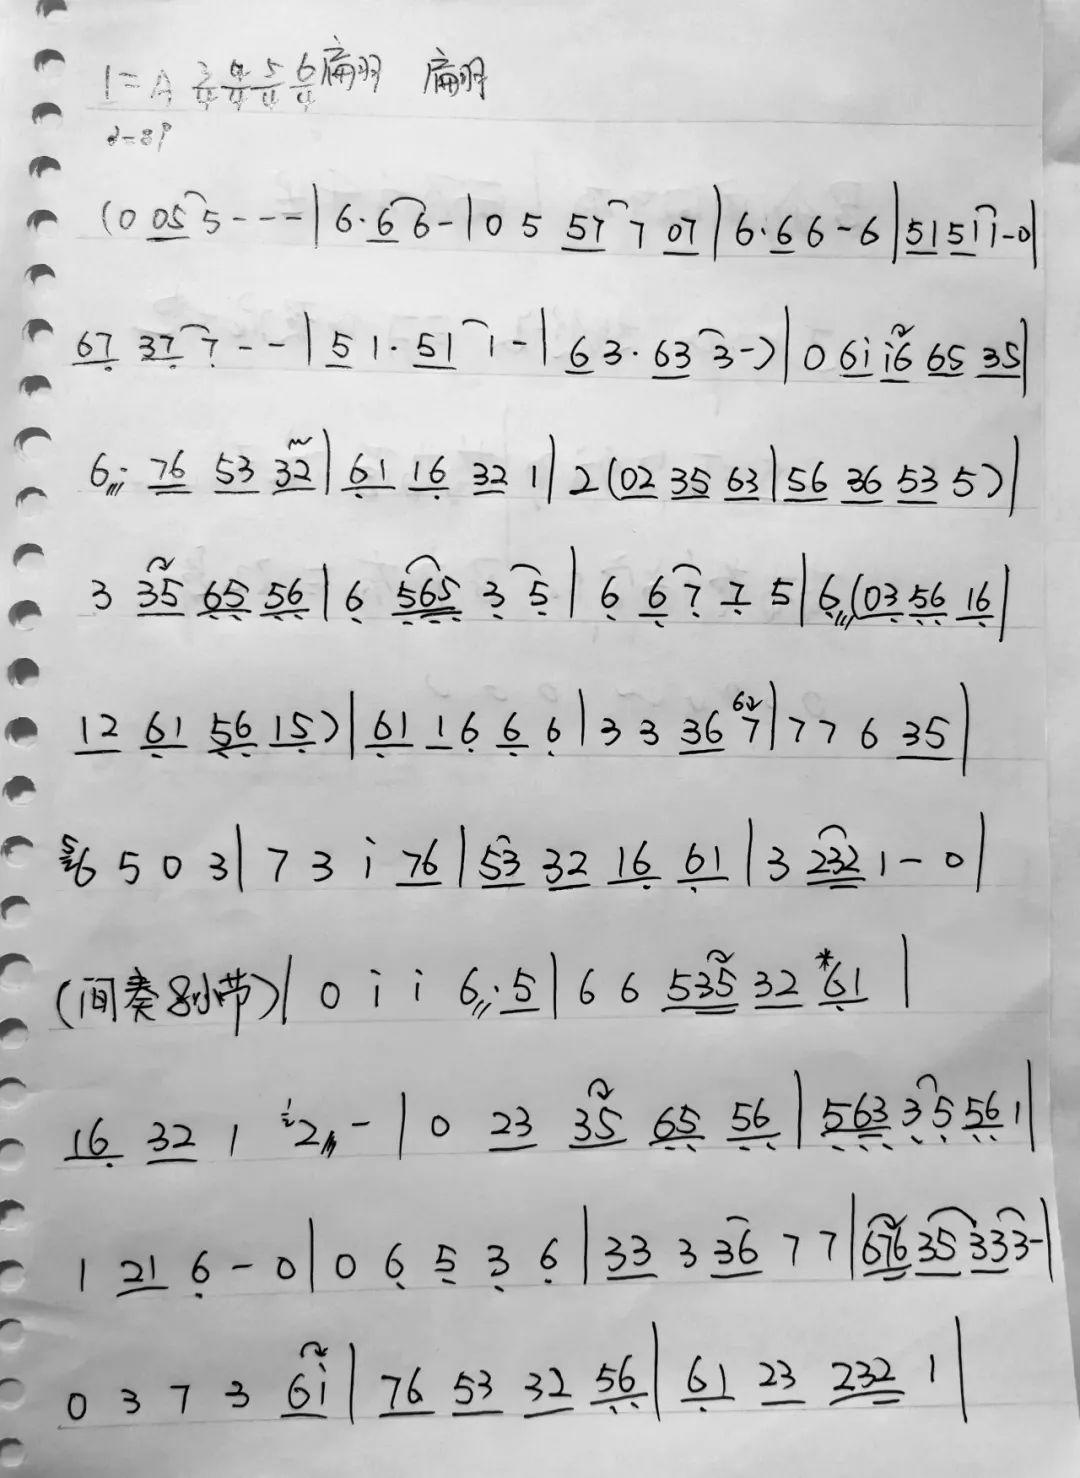 1=A 3/4 4/4 5/4 6/4 扁羽 扁羽
(0 05 5---|6·66-|0 5 57 7 07|6·66-6|51511-0|
67 37 7--|5 1·51 1-|63·633-)|0 6i i6 65 35|
6· 76 53 32|61 16 32 1|2(02 35 63|56 36 53 5)|
3 35 65 56|6 565 3 5|6 6 7 7 5|6(03 56 16|
12 61 56 15)|61 16 6 6|3 3 36 67 7|7 7 6 35|
5 6 5 0 3|7 3 i 76|53 32 16 61|3 232 1-0|
(间奏8小节)|0 i i 6·5|6 6 535 32 *61|
16 32 1 i2-|0 23 35 65 56|563 35 56 1|
1 21 6-0|0 6 5 3 6|33 3 36 7 7|676 35 333-|
0 3 7 3 6i|76 53 32 56|61 23 232 1|